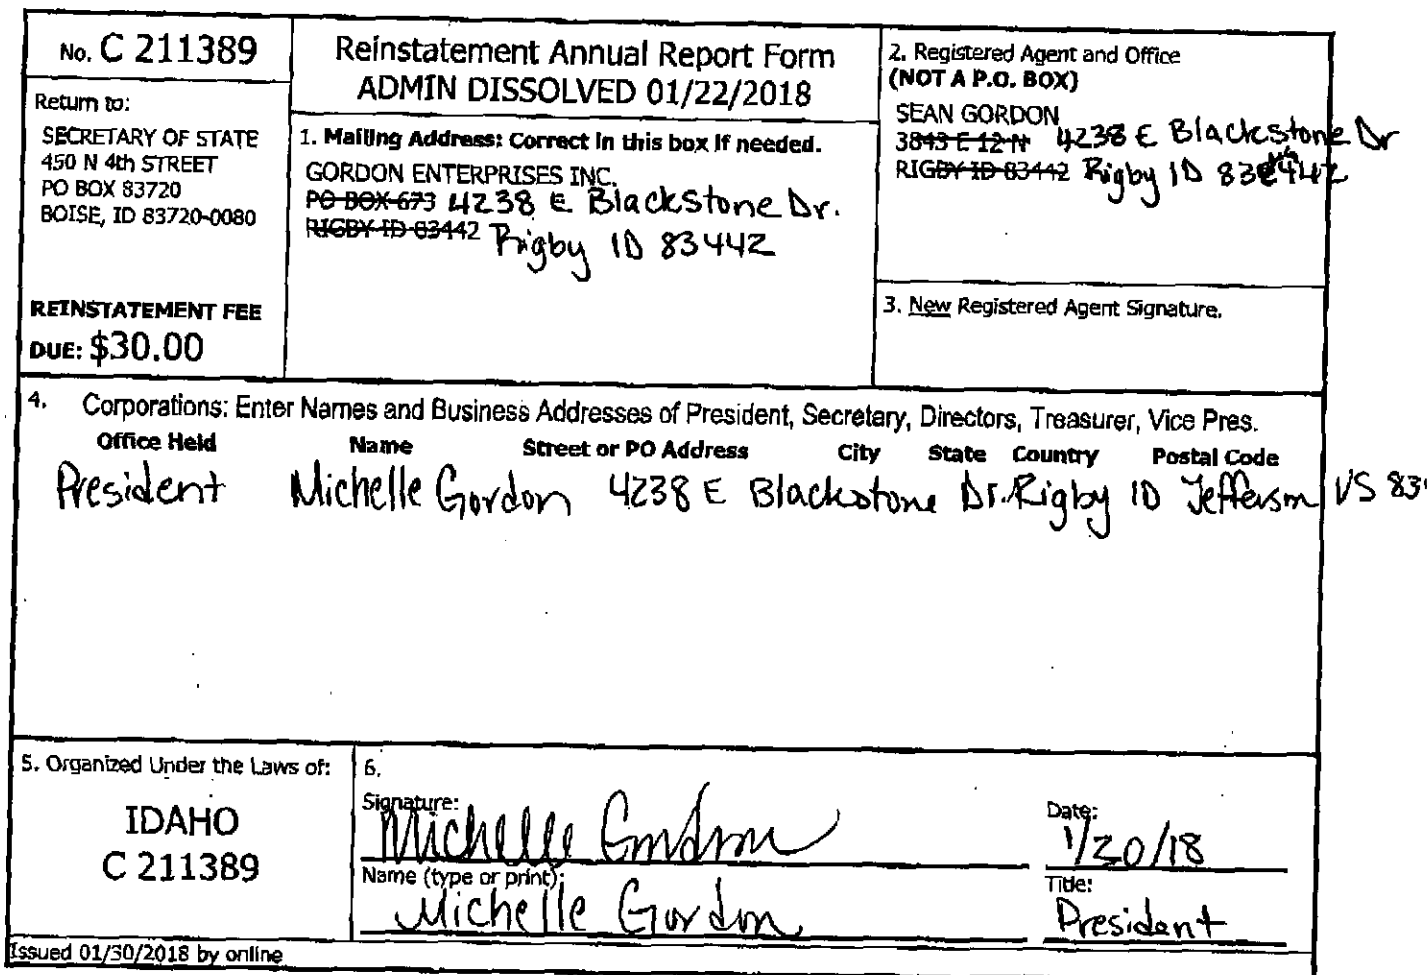 No. C 211389
Return to:
SECRETARY OF STATE
450 N 4th STREET
PO BOX 83720
BOISE, ID 83720-0080
REINSTATEMENT FEE
DUE: $30.00
Reinstatement Annual Report Form
ADMIN DISSOLVED 01/22/2018
1. Mailing Address: Correct in this box if needed.
GORDON ENTERPRISES INC.
PO BOX 673 4238 E Blackstone Dr.
RIGBY ID 83442 Rigby ID 83442
2. Registered Agent and Office
(NOT A P.O. BOX)
SEAN GORDON
3843 E 12 N 4238 E Blackstone Dr
RIGBY ID 83442 Rigby ID 83442
3. New Registered Agent Signature.
4. Corporations: Enter Names and Business Addresses of President, Secretary, Directors, Treasurer, Vice Pres.
Office Held Name Street or PO Address City State Country Postal Code
President Michelle Gordon 4238 E Blackstone Dr. Rigby ID Jefferson US 83
5. Organized Under the Laws of:
IDAHO
C 211389
6.
Signature: Michelle Gordon
Date: 1/20/18
Name (type or print): Michelle Gordon
Title: President
Issued 01/30/2018 by online